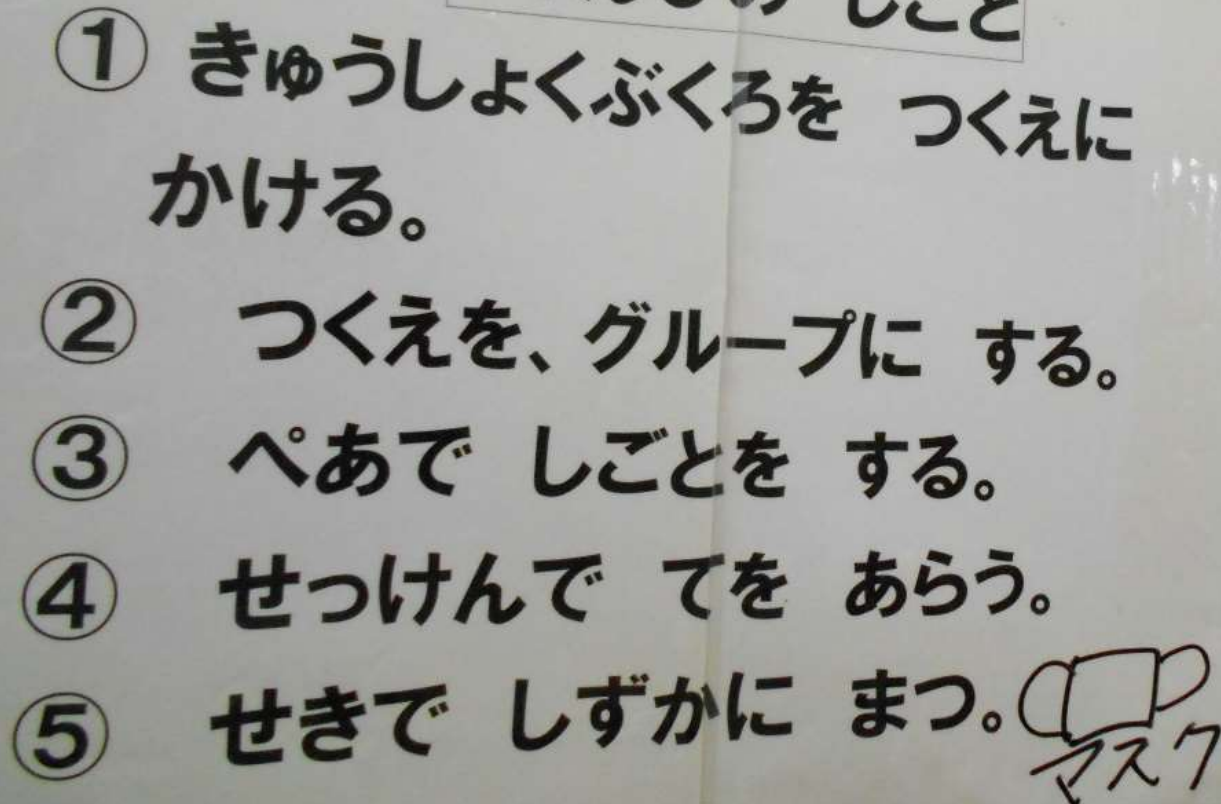 しごと
① きゅうしょくぶくろを つくえに
かける。
② つくえを、グループに する。
③ ぺあで しごとを する。
④ せっけんで てを あらう。
⑤ せきで しずかに まつ。
マスク